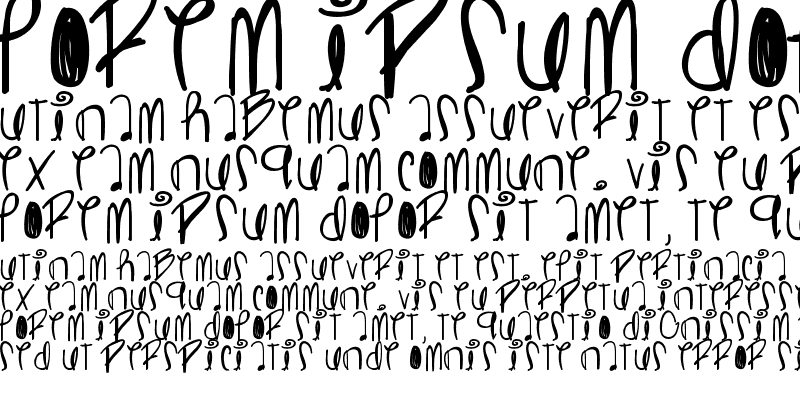 lorem ipsum dol
utinam habemus assueverit et es
ex eam nusquam commune. vis eu p
lorem ipsum dolor sit amet, te qu
utinam habemus assueverit et est. elit pertinacia
ex eam nusquam commune. vis eu perpetua interesse
lorem ipsum dolor sit amet, te quaestio dignissim
sed ut perspiciatis unde omnis iste natus error si